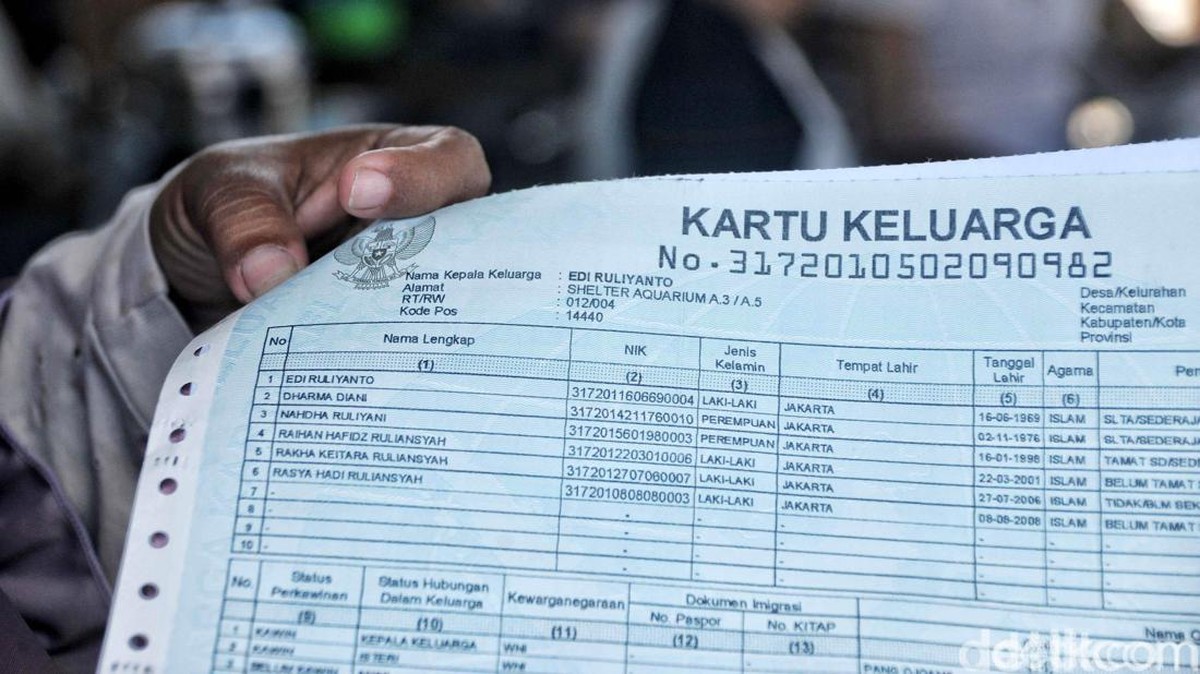 KARTU KELUARGA
No.3172010502090982
Nama Kepala Keluarga : EDI RULIYANTO
Alamat : SHELTER AQUARIUM A.3 / A.5
RT/RW : 012/004
Kode Pos : 14440
Desa/Kelurahan
Kecamatan
Kabupaten/Kota
Provinsi
No Nama Lengkap NIK Jenis Kelamin Tempat Lahir Tanggal Lahir Agama
(1) (2) (3) (4) (5) (6)
1 EDI RULIYANTO 3172011606690004 LAKI-LAKI JAKARTA 16-06-1969 ISLAM SLTA/SEDERAJA
2 DHARMA DIANI 3172014211760010 PEREMPUAN JAKARTA 02-11-1976 ISLAM SLTA/SEDERAJA
3 NAHDHA RULIYANI 3172015601980003 PEREMPUAN JAKARTA 16-01-1998 ISLAM TAMAT SD/SEDERA
4 RAIHAN HAFIDZ RULIANSYAH 3172012203010006 LAKI-LAKI JAKARTA 22-03-2001 ISLAM BELUM TAMAT S
5 RAKHA KEITARA RULIANSYAH 3172012707060007 LAKI-LAKI JAKARTA 27-07-2006 ISLAM TIDAK/BLM SEK
6 RASYA HADI RULIANSYAH 3172010808080003 LAKI-LAKI JAKARTA 08-08-2008 ISLAM BELUM TAMAT
7 - - - - - - -
8 - - - - - - -
9 - - - - - - -
10 - - - - - - -
No. Status Perkawinan Status Hubungan Dalam Keluarga Kewarganegaraan Dokumen Imigrasi
No. Paspor No. KITAP Nama
(9) (10) (11) (12) (13)
1 KAWIN KEPALA KELUARGA WNI
2 KAWIN ISTERI WNI
3 BELUM KAWIN
detikcom